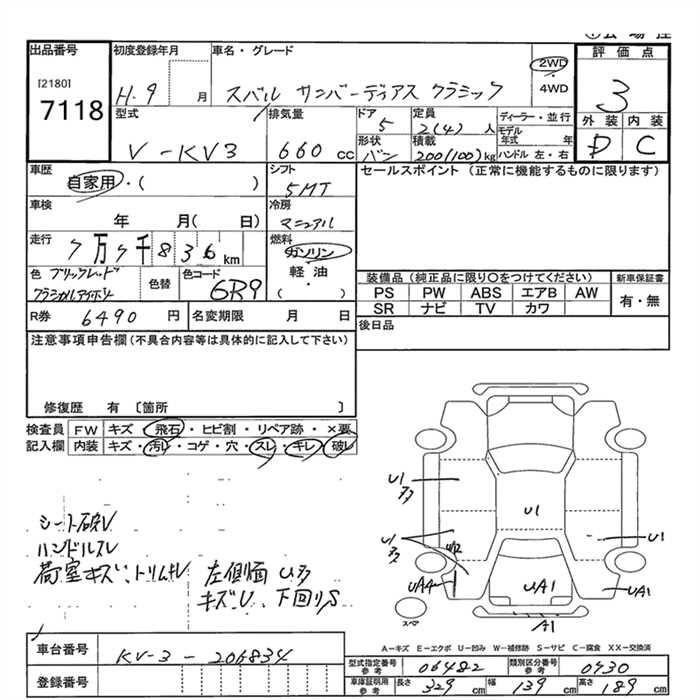 出品番号
[2180]
7118
初度登録年月
H.9 月
車名・グレード
スバル サンバーディアス クラシック
2WD
・
4WD
評価点
3
外装 内装
D C
型式
V-KV3
排気量
660 cc
ドア
5
定員
2(4) 人
ディーラー・並行
モデル年式 年
ハンドル 左・右
形状
バン
積載
200(100)kg
車歴
自家用・( )
シフト
5MT
セールスポイント (正常に機能するものに限ります)
車検
年 月( 日)
冷房
マニュアル
走行
7万7千836km
燃料
ガソリン
軽油
・
( )
色 ブリックレッド
クラシカルアイボリー
色替
色コード
6R9
装備品(純正品に限り〇をつけてください)
新車保証書
PS PW ABS エアB AW
SR ナビ TV カワ
有・無
R券 6490 円
名変期限 月 日
後日品
注意事項申告欄(不具合内容等は具体的に記入して下さい)
修復歴 有 〔箇所 〕
検査員
記入欄
FW キズ・飛石・ヒビ割・リペア跡・×要
内装 キズ・汚レ・コゲ・穴・スレ・キレ・破レ
シート破レ
ハンドルスレ
荷室キズ、トリムキレ
左側面 U多
キズU、下回りS
U1
多
U1
U1
多
W2
U1
UA4
UA1
UA1
A1
スペア
A-キズ E-エクボ U-凹み W-補修跡 S-サビ C-腐食 XX-交換済
車台番号
KV-3-206834
登録番号
型式指定番号
参考
06482
類別区分番号
参考
0430
車庫証明用
参考
長さ 329 cm
幅 139 cm
高さ 189 cm